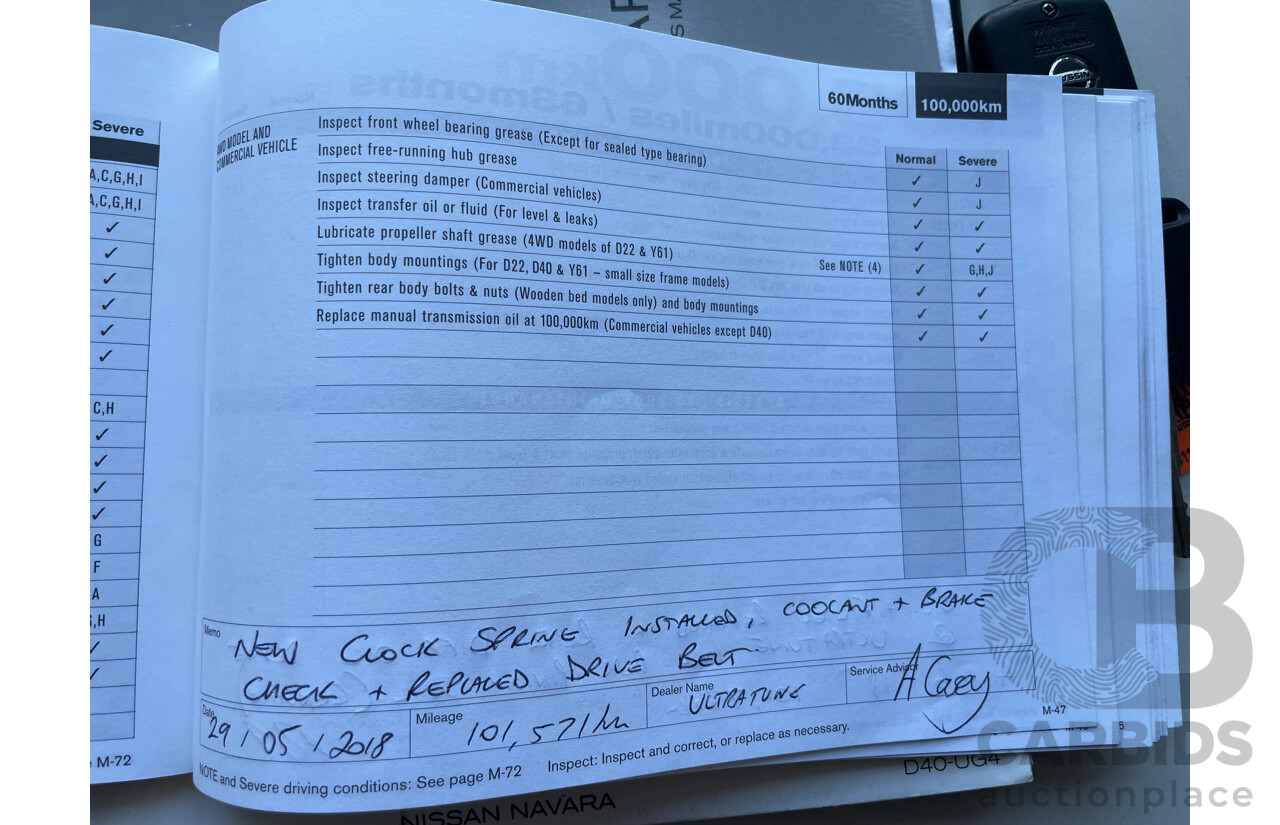 60Months 100,000km
Normal Severe
4WD MODEL AND
COMMERCIAL VEHICLE
Inspect front wheel bearing grease (Except for sealed type bearing) ✓ J
Inspect free-running hub grease ✓ J
Inspect steering damper (Commercial vehicles) ✓ ✓
Inspect transfer oil or fluid (For level & leaks) ✓ ✓
Lubricate propeller shaft grease (4WD models of D22 & Y61) See NOTE (4) ✓ G,H,J
Tighten body mountings (For D22, D40 & Y61 – small size frame models) ✓ ✓
Tighten rear body bolts & nuts (Wooden bed models only) and body mountings ✓ ✓
Replace manual transmission oil at 100,000km (Commercial vehicles except D40) ✓ ✓
Memo
NEW CLOCK SPRING INSTALLED, COOLANT + BRAKE
CHECK + REPLACED DRIVE BELT
Date 29/05/2018
Mileage 101,571km
Dealer Name ULTRATUNE
Service Advisor A Carey
M-47
NOTE and Severe driving conditions: See page M-72 Inspect: Inspect and correct, or replace as necessary.
Severe
A,C,G,H,I
A,C,G,H,I
✓
✓
✓
✓
✓
✓
C,H
✓
✓
✓
✓
G
F
A
,H
✓
✓
M-72
NISSAN NAVARA
D40-UG4
NISSAN
CARBIDS
auctionplace